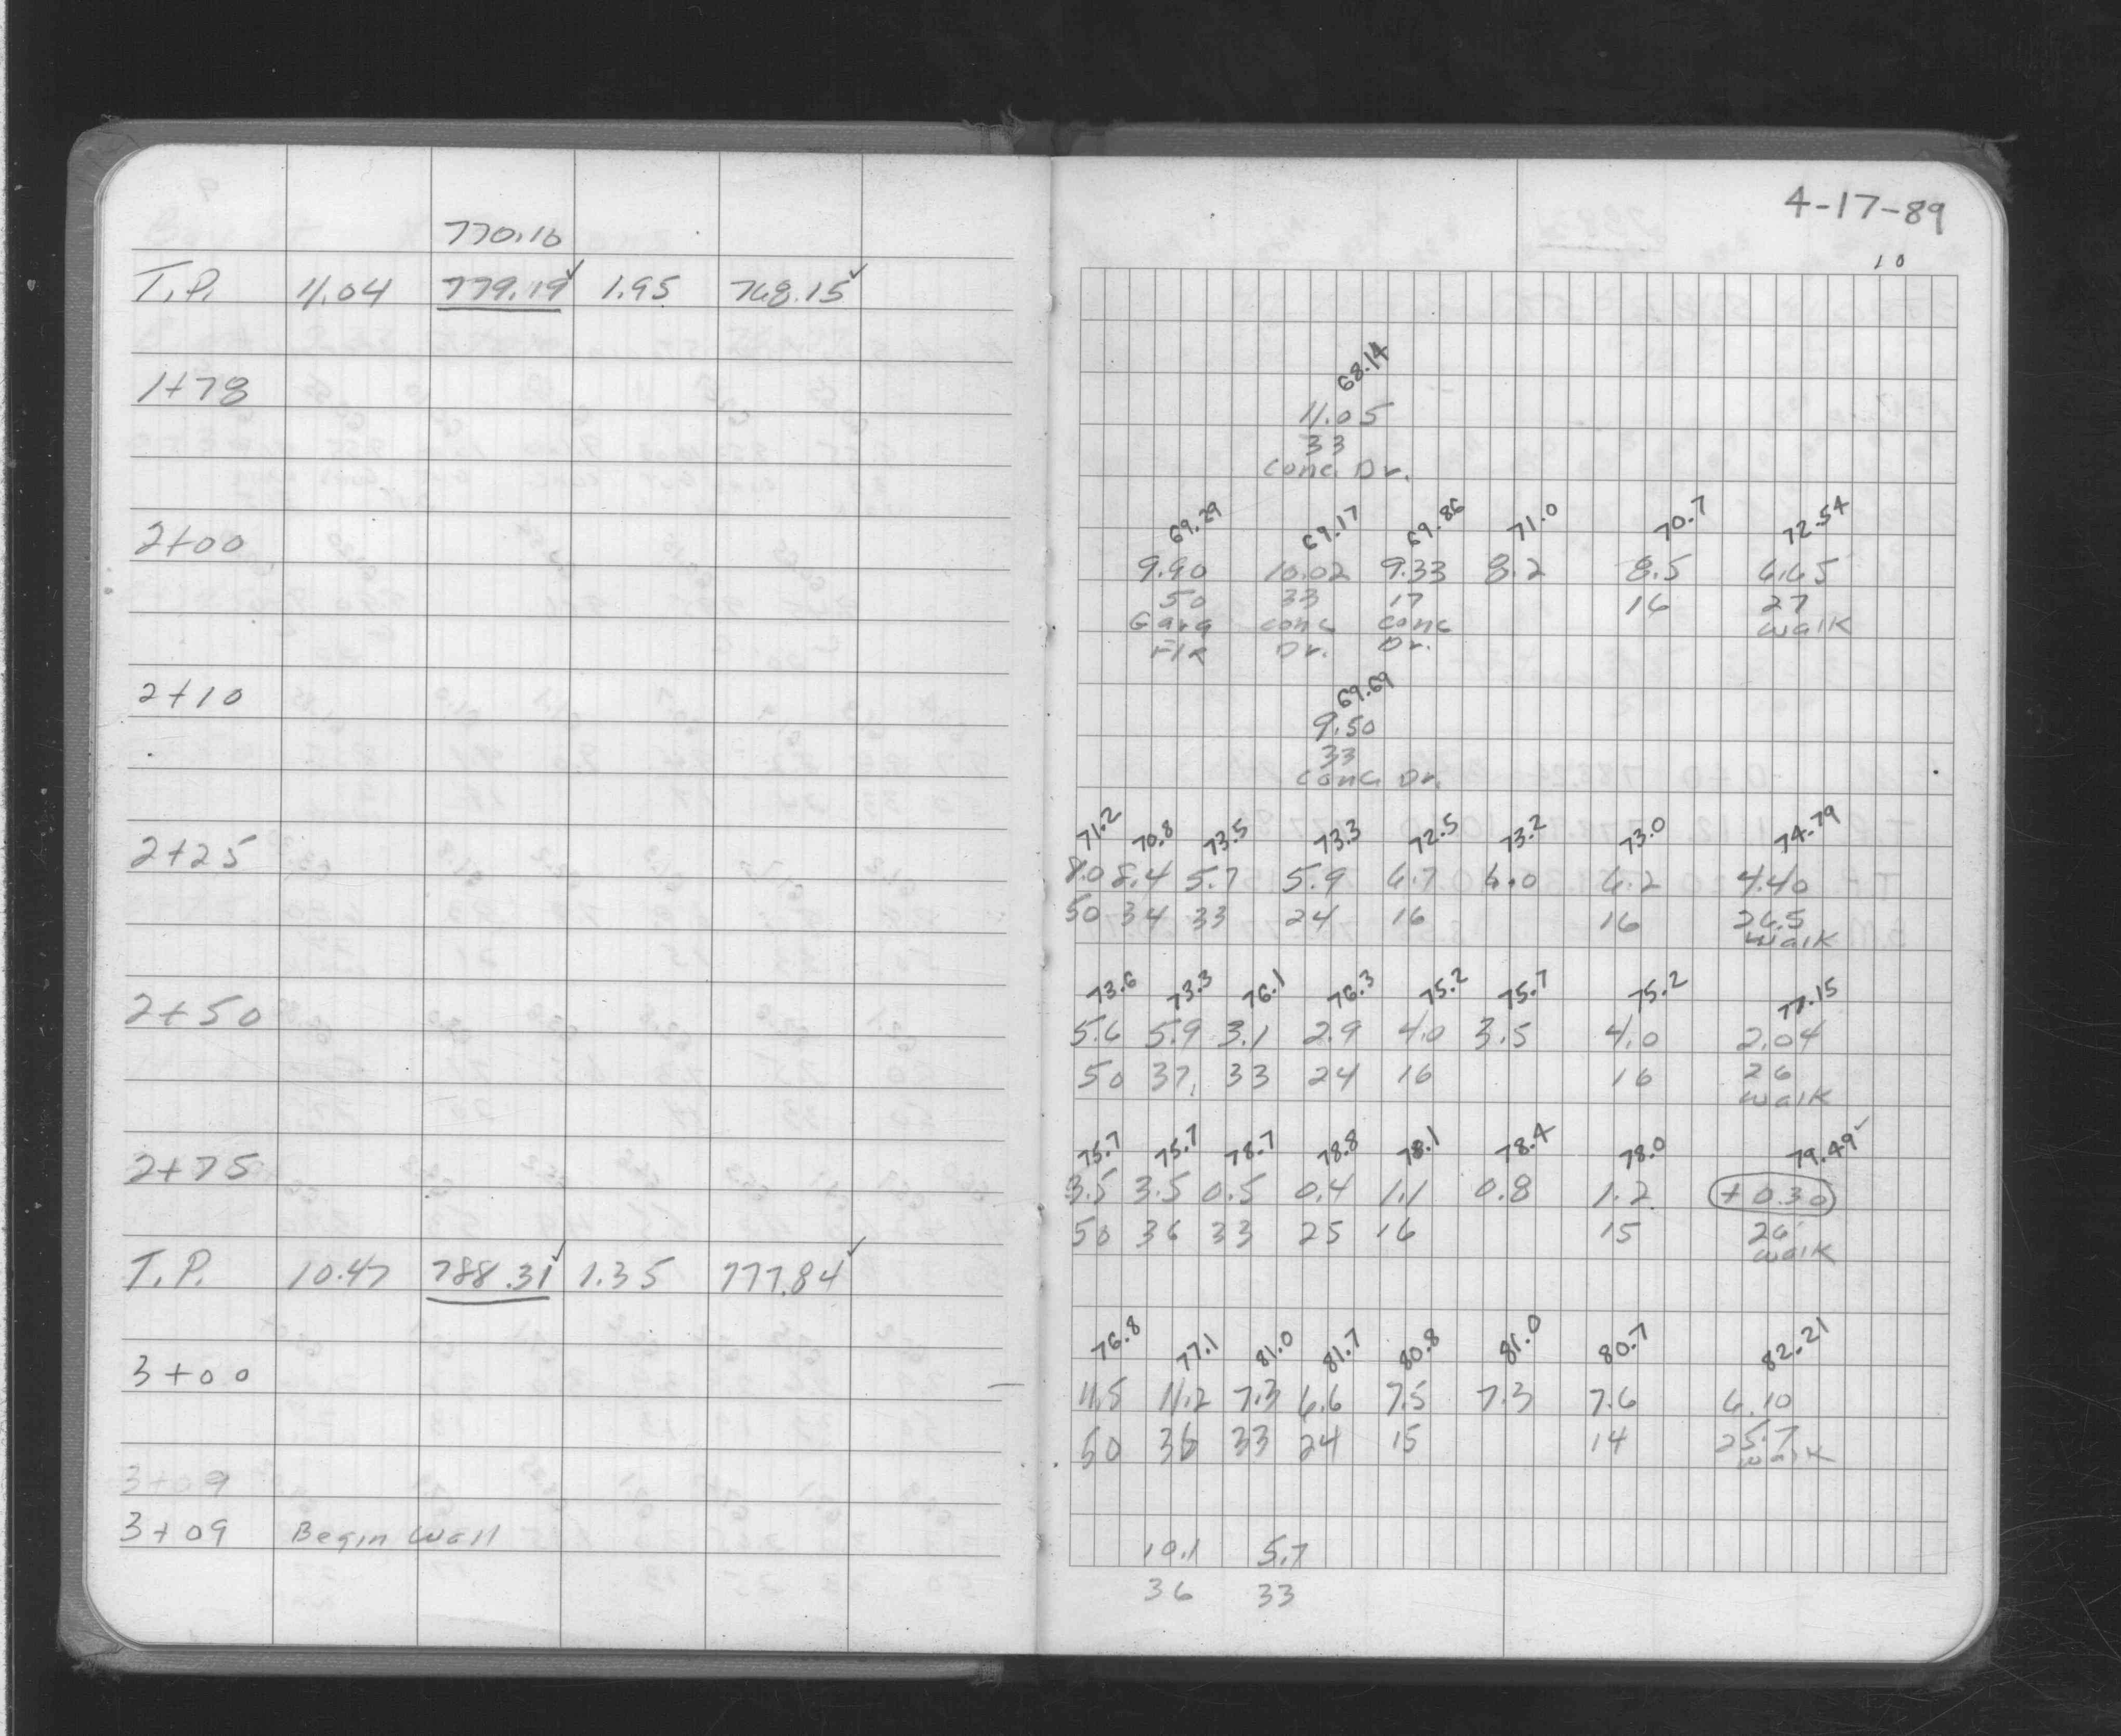 770.10
T.P. 11.04 779.19✓ 1.95 768.15✓
1+78
2+00
2+10
2+25
2+50
2+75
T.P. 10.47 788.31✓ 1.35 777.84✓
3+00
3+09
3+09 Begin Wall
4-17-89
10
68.14
11.05
33
Conc. Dr.
69.29 69.17 69.86 71.0 70.7 72.54
9.90 10.02 9.33 8.2 8.5 6.65
50 33 17 16 27
Garg conc conc walk
Flr Dr. Dr.
69.69
9.50
33
Conc. Dr.
71.2 70.8 73.5 73.3 72.5 73.2 73.0 74.79
8.0 8.4 5.7 5.9 6.7 6.0 6.2 4.40
50 34 33 24 16 16 26.5
walk
73.6 73.3 76.1 76.3 75.2 75.7 75.2 77.15
5.6 5.9 3.1 2.9 4.0 3.5 4.0 2.04
50 37 33 24 16 16 26
walk
75.7 75.7 78.7 78.8 78.1 78.4 78.0 79.49✓
3.5 3.5 0.5 0.4 1.1 0.8 1.2 +0.30
50 36 33 25 16 15 26
walk
76.8 77.1 81.0 81.7 80.8 81.0 80.7 82.21
11.5 11.2 7.3 6.6 7.5 7.3 7.6 6.10
50 36 33 24 15 14 25.7
walk
10.1 5.7
36 33